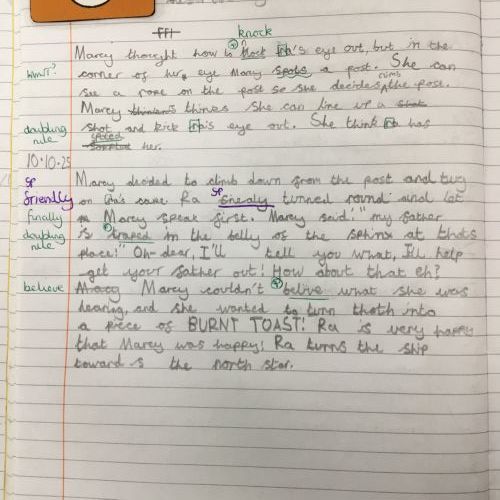 knock
Marcy thought how to nock Ra's eye out, but in the
want? corner of her eye Marcy spots a post. She can
climb
see a rope on the post so she decides the pose.
Marcy thinks she can line up a shot
doubling shot and kick Ra's eye out. She think Ra has
rule spotted her.
10.10.25
sp Marcy decided to climb down from the post and tug
friendly on Ra's cape Ra sp sneaky turned round and let
finally Marcy speak first. Marcy said: "my father
doubling is traped in the belly of the sphinx at thots
rule place!" Oh-dear, I'll tell you what, I'll help
get your father out! How about that eh?
believe Marcy couldn't belive what she was
hearing, and she wanted to turn thoth into
a piece of BURNT TOAST! Ra is very happy
that Marcy was happy! Ra turns the ship
toward s the north star.